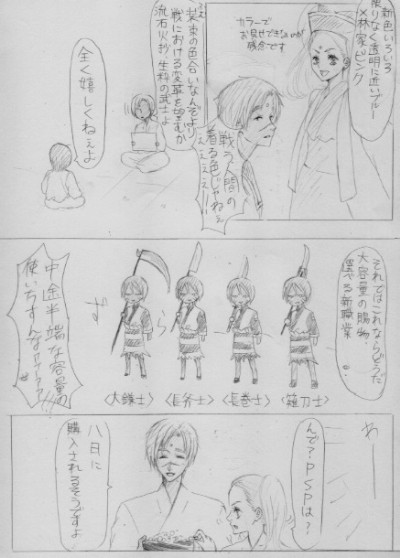 新色いろいろ
限りなく透明に近いブルー
×林家ピンク
カラーで
お見せできないのが
残念です
戦う人間の
着る色じゃねぇ
ぇぇぇぇー!
ええ
装束の色合いなんぞより
戦における変革を望むか
流石火抄、生粋の武士よ
全く嬉しくねぇよ
それではこれならどうだ
大容量の賜物
選べる新職業
ずらー
〈薙刀士〉
〈長巻士〉
〈長斧士〉
〈大鎌士〉
中途半端な容量の
使いちすんなァァァァ!!!
わーー
んで?PSPは?
八日に
購入されるそうですよ